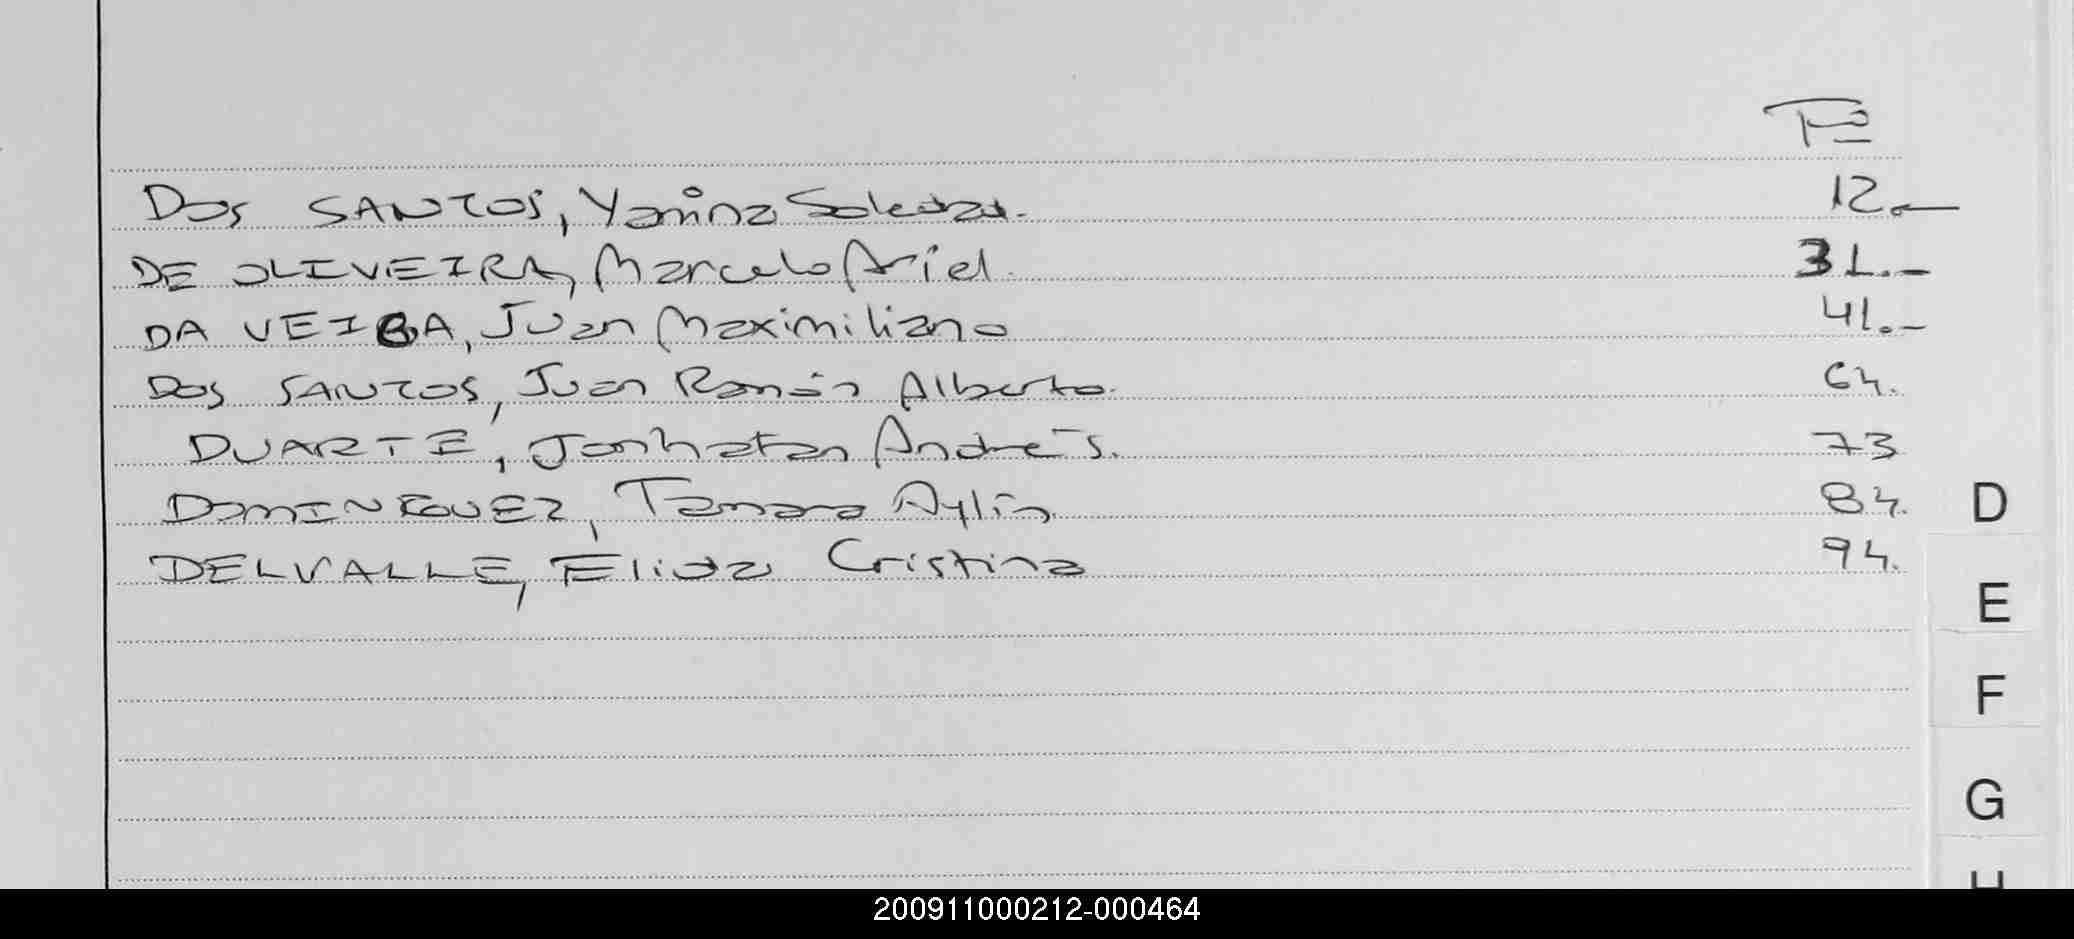 Fº
DOS SANTOS, Yanina Soledad. 12.-
DE OLIVEIRA, Marcelo Ariel. 31.-
DA VEIGA, Juan Maximiliano 41.-
DOS SANTOS, Juan Ramón Alberto. 64.
DUARTE, Jonhatan Andrés. 73
DOMINGUEZ, Tamara Aylin 84.
DELVALLE, Elida Cristina 94.
D
E
F
G
H
200911000212-000464